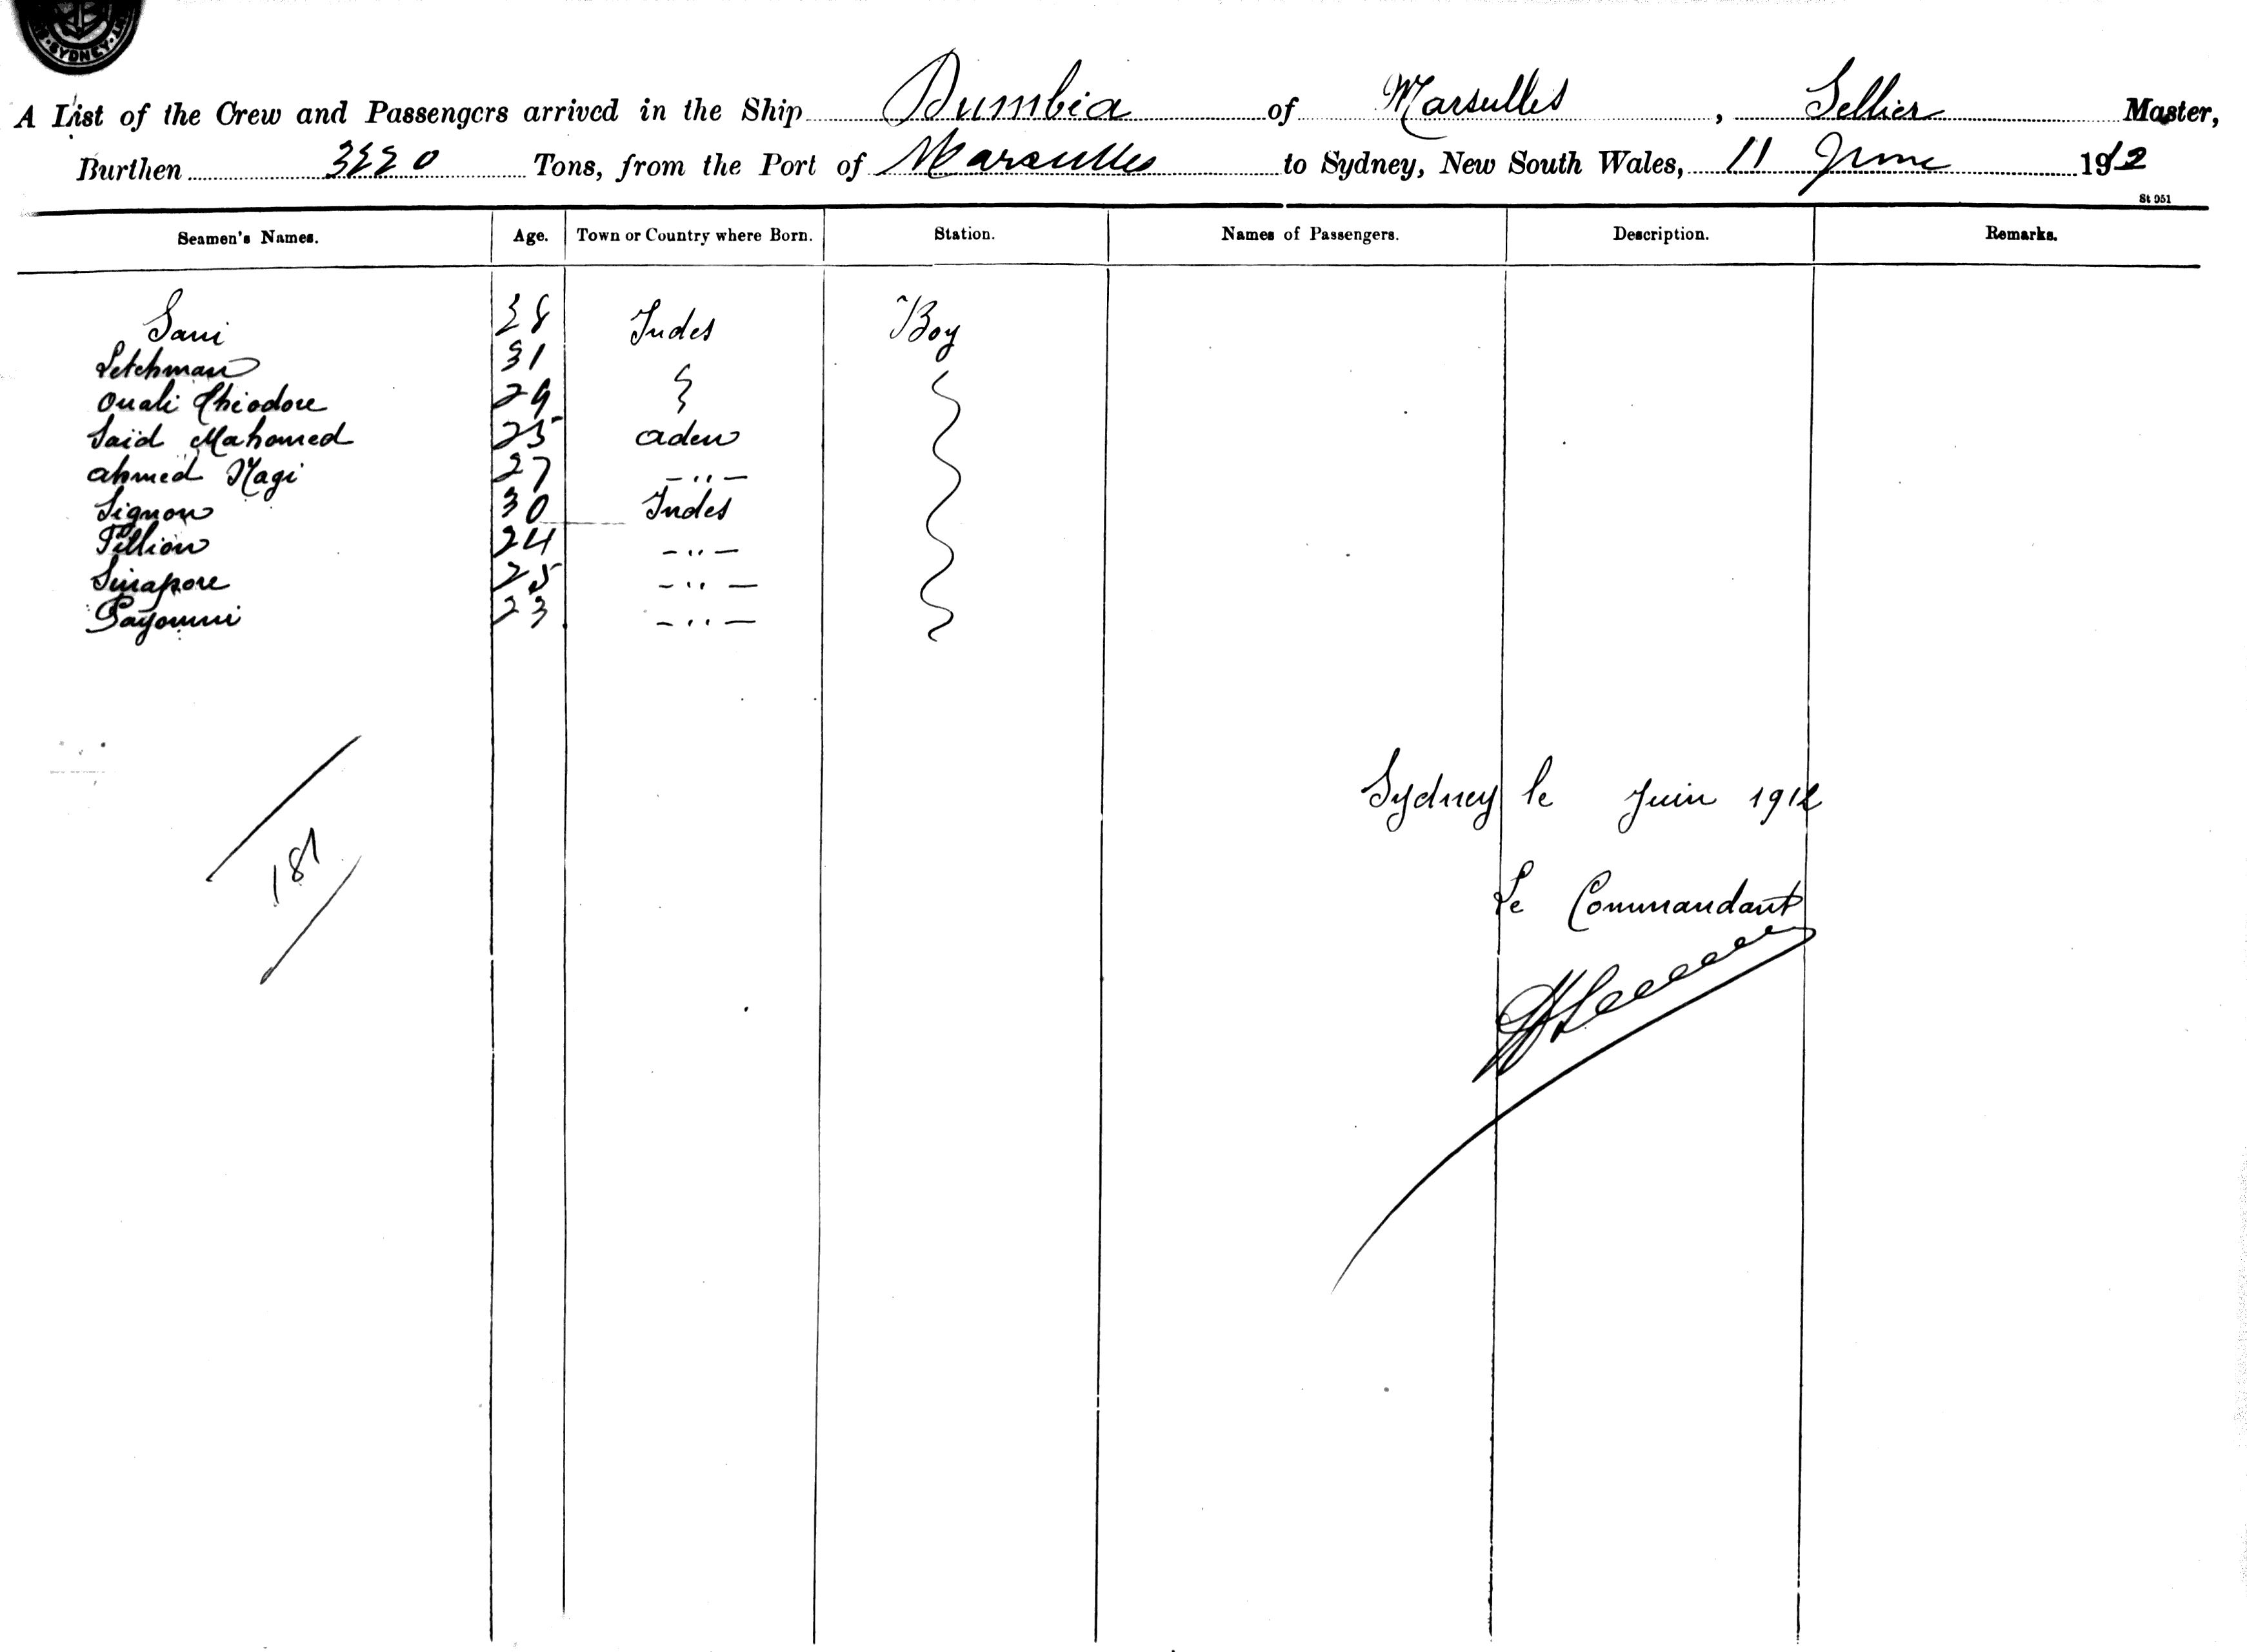 SYDNEY
A List of the Crew and Passengers arrived in the Ship Dumbea of Marseilles, Sellier Master,
Burthen 3220 Tons, from the Port of Marseilles to Sydney, New South Wales, 11 June 1912
St 951
Seamen's Names. Age. Town or Country where Born. Station. Names of Passengers. Description. Remarks.
Sani 28 Indes Boy
Letchman 31
Ouali Théodore 29
Saïd Mahomed 25 Aden
Ahmed Nagi 27 - " -
Signon 30 Indes
Tillion 24 - " -
Sinapore 25 - " -
23 - " -
Sydney le Juin 1912
187
Le Commandant